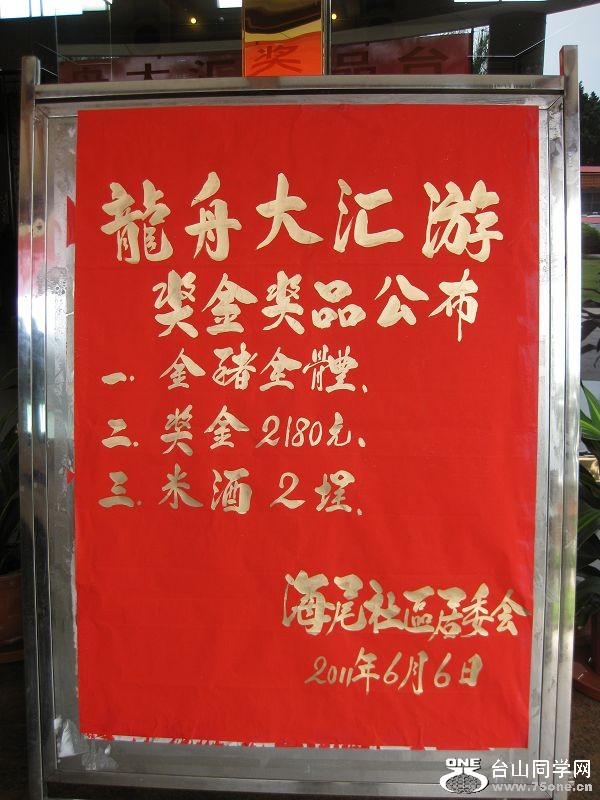 龍舟大汇奖品台
龍舟大汇游
奖金奖品公布
一.金豬全體、
二.奖金2180元、
三.米酒2埕、
海尾社區居委会
2011年6月6日
ONE 台山同学网
www.75one.cn